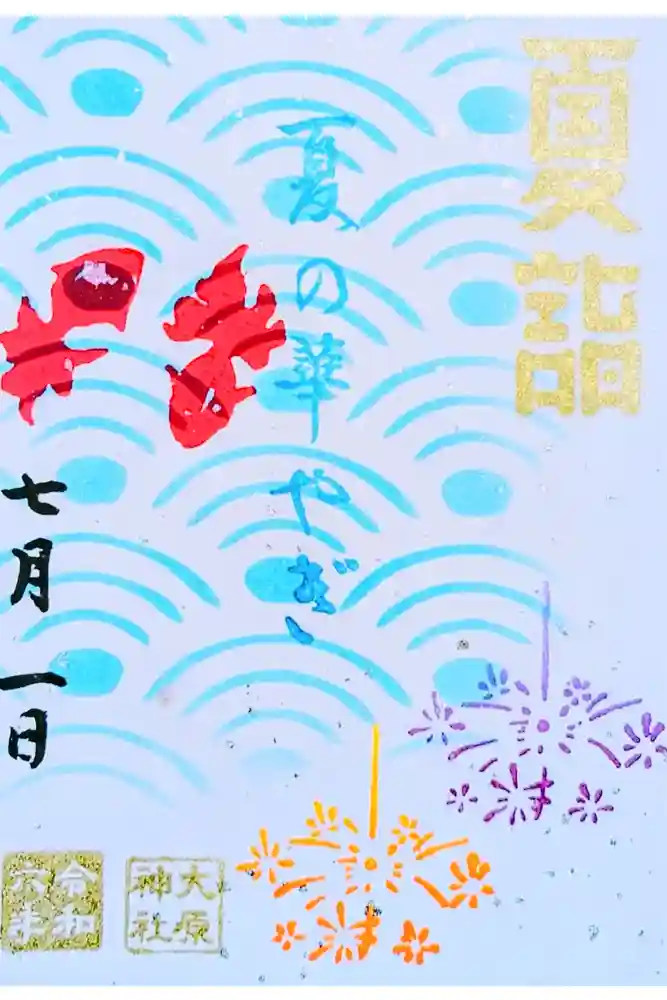 夏詣
夏の華やぎ
七月一日
令和六年
大原神社